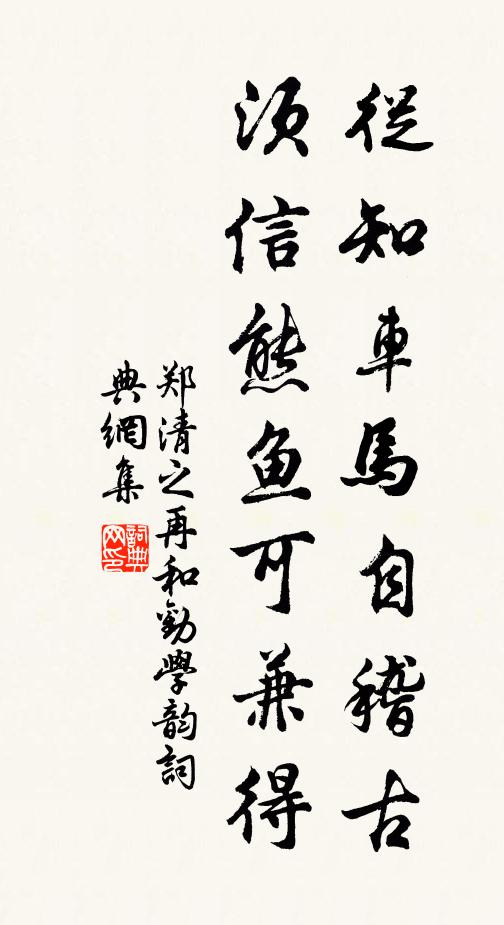 從知車馬自稽古
須信熊魚可兼得
郑清之再和勸學韵詞
典網集
詞典
网印